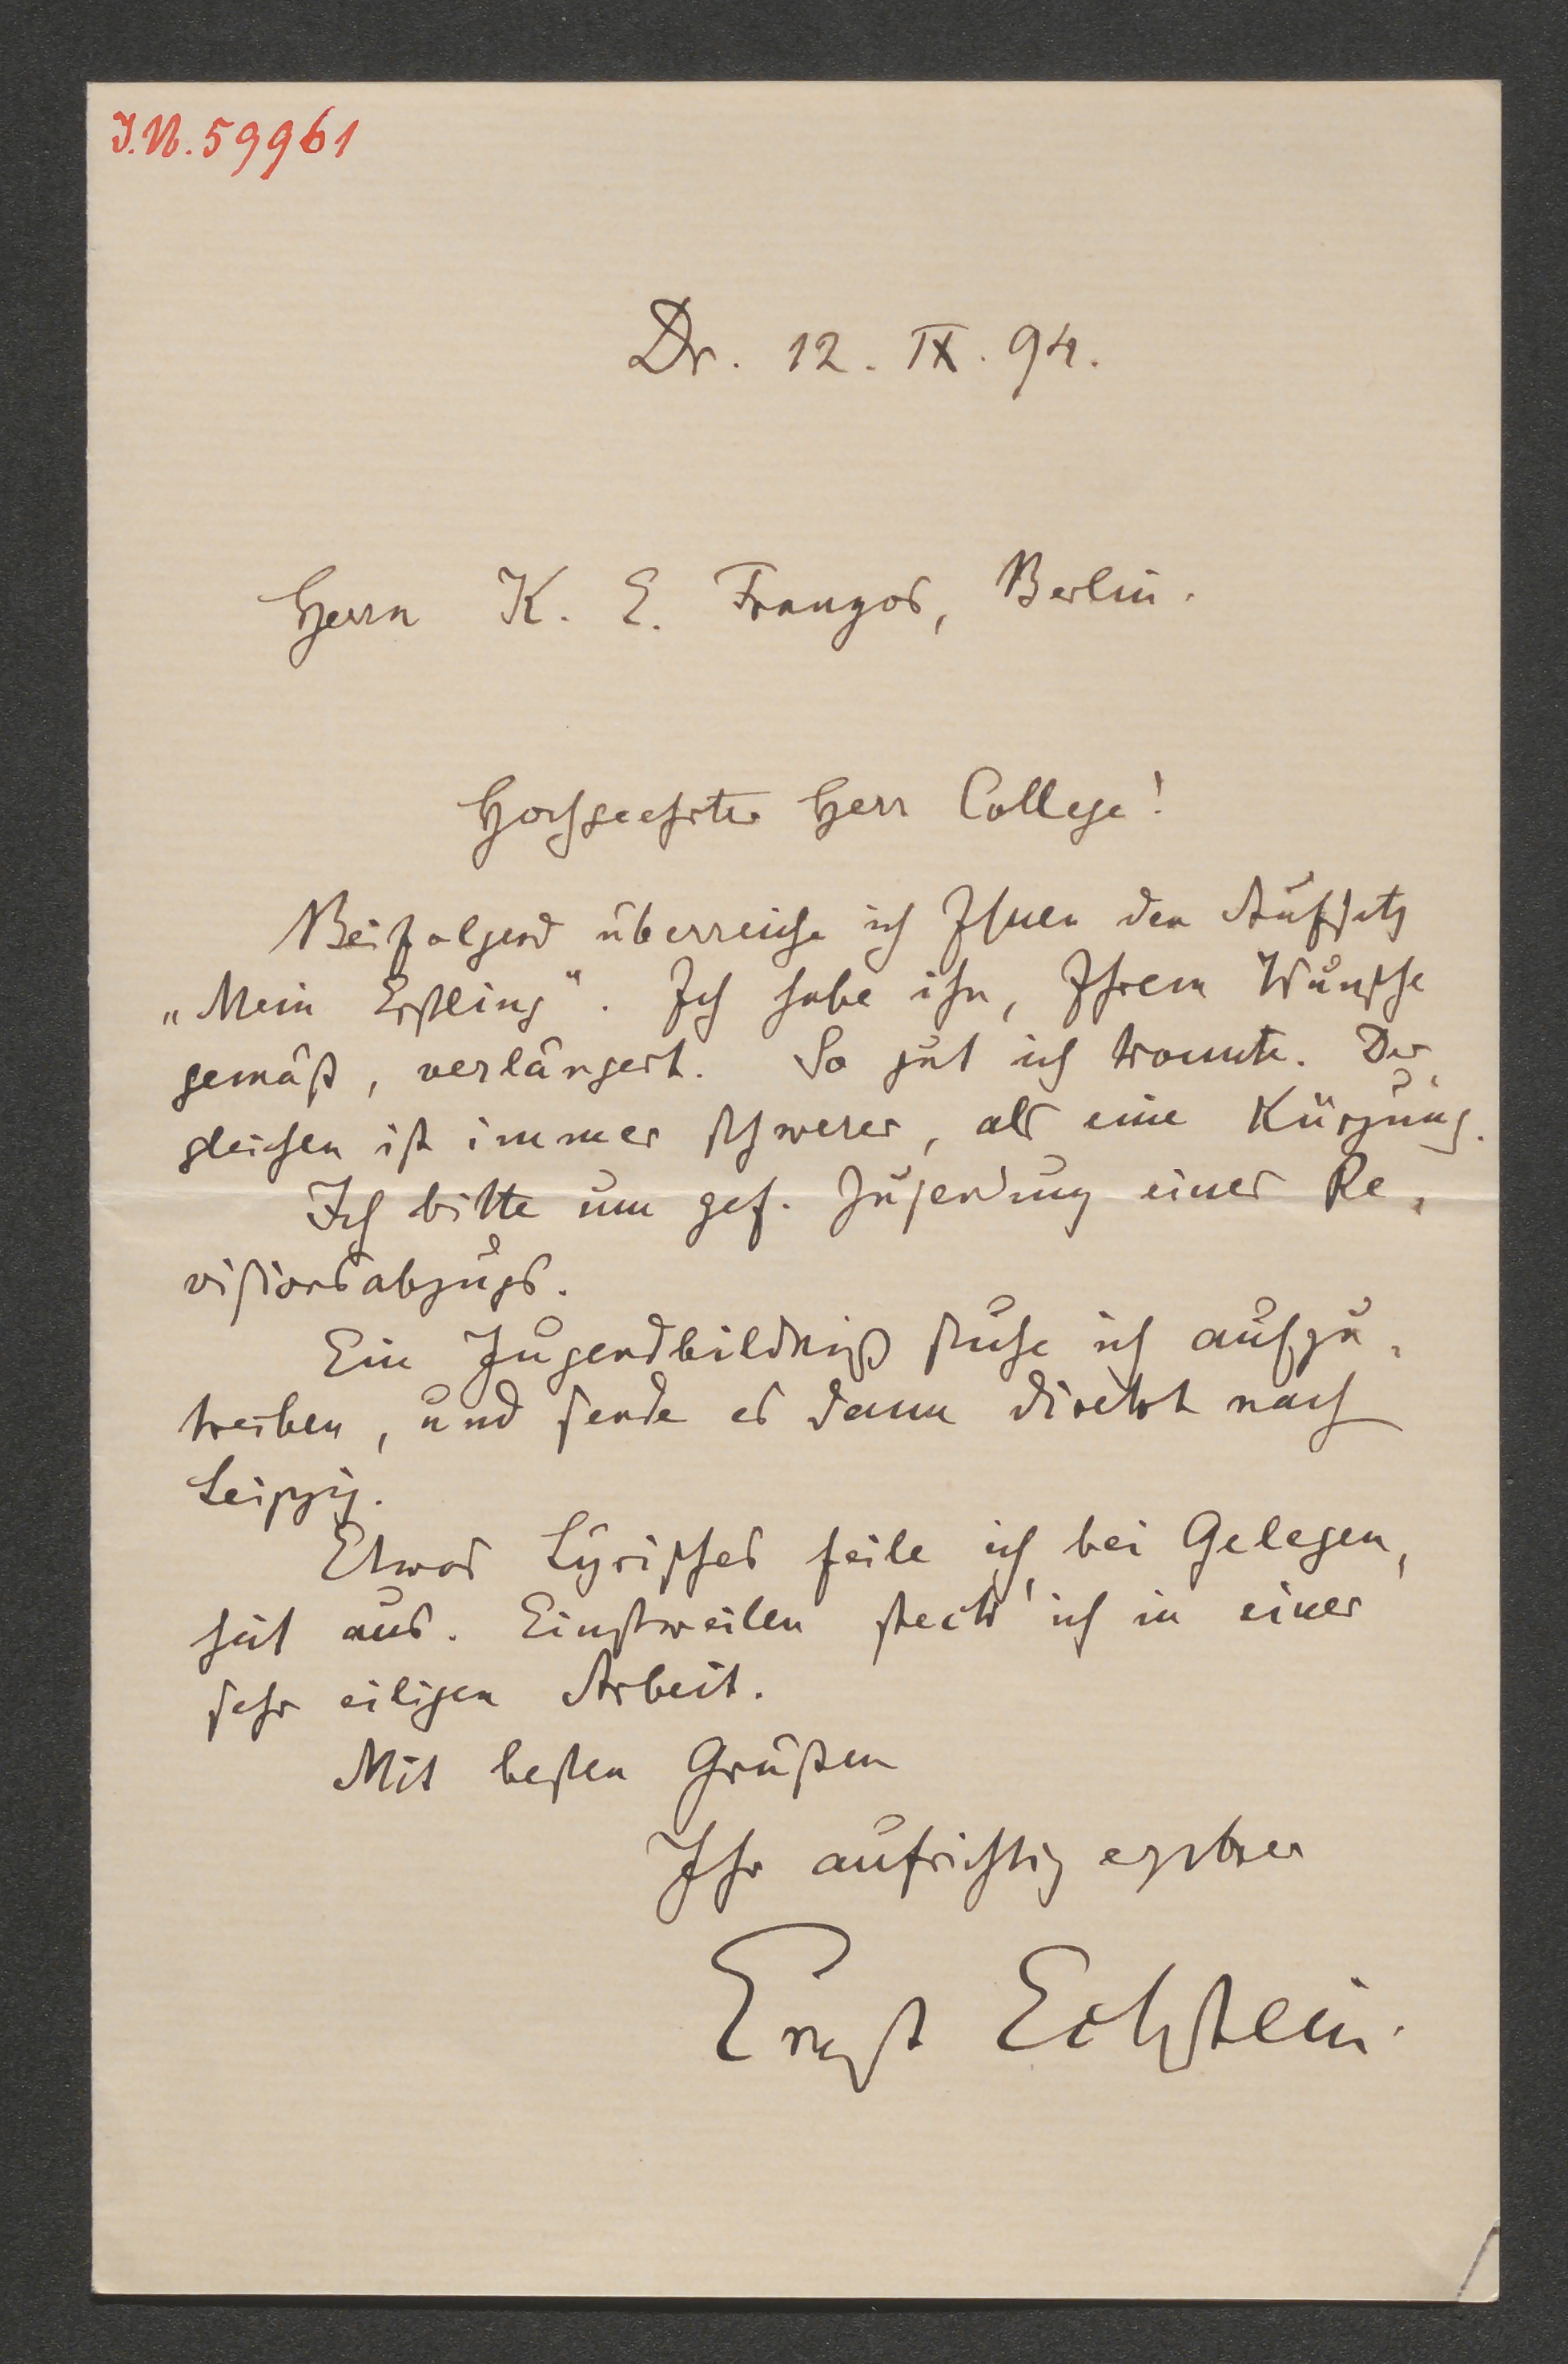 I.N. 59961
Dr. 12. IX. 94.
Herrn K. E. Franzos, Berlin.
Hochgeehrter Herr College!
Beifolgend überreiche ich Ihnen den Aufsatz
„Mein Erstling". Ich habe ihn, Ihrem Wunsche
gemäß, verlängert. So gut ich konnte. Der-
gleichen ist immer schwerer, als eine Kürzung.
Ich bitte um gef. Zusendung eines Re-
visionsabzugs.
Ein Jugendbildniß suche ich aufzu-
treiben, und sende es dann direkt nach
Leipzig.
Etwas Lyrisches feile ich bei Gelegen-
heit aus. Einstweilen steck' ich in einer
sehr eiligen Arbeit.
Mit besten Grüßen
Ihr aufrichtig ergebner
Ernst Eckstein.